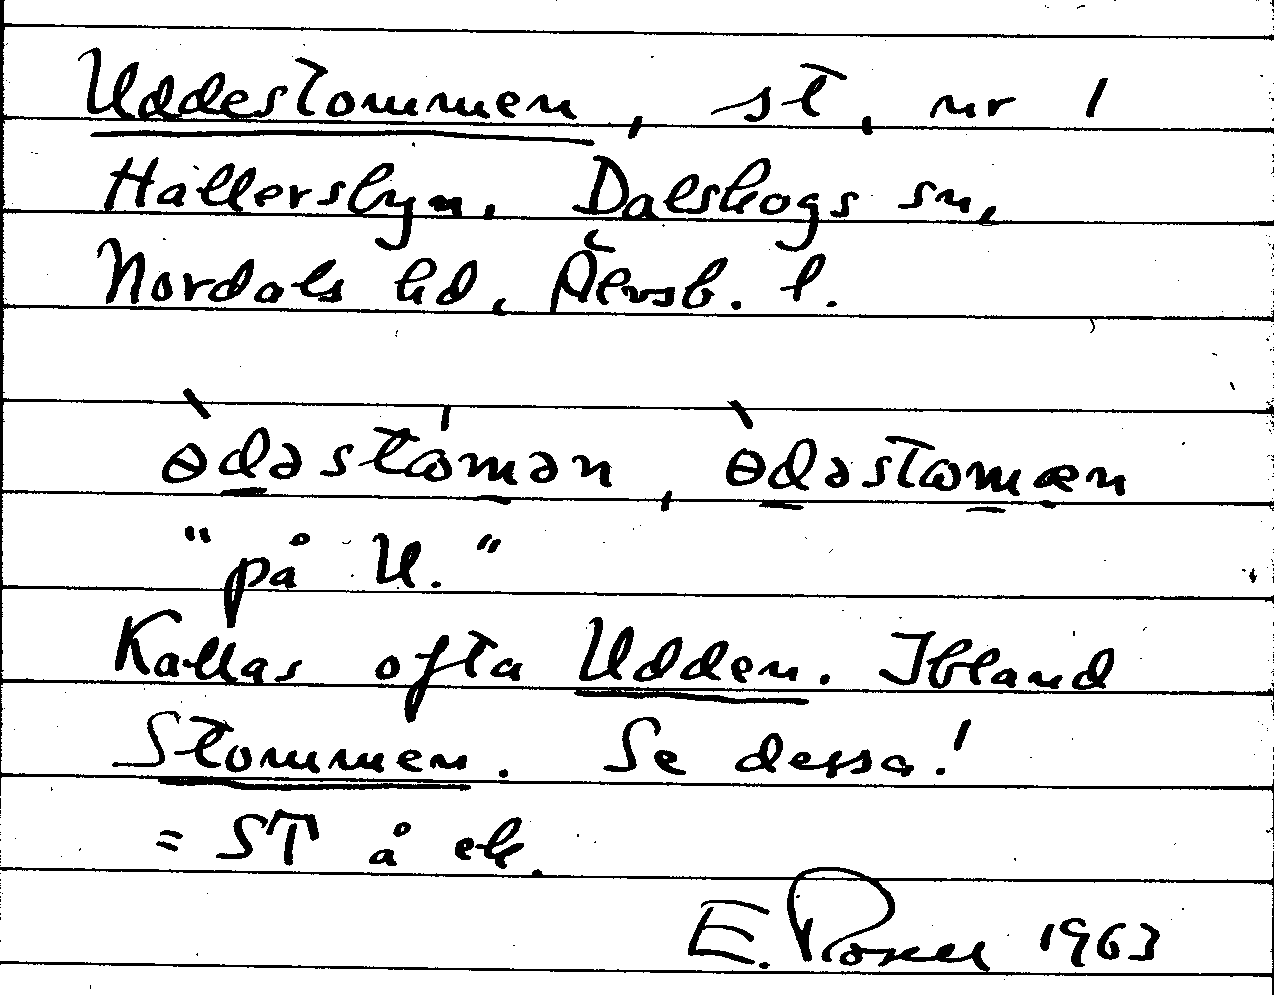 Uddestommen, st, nr 1
Hällersbyn. Dalskogs sn,
Nordals hd, Älvsb. l.
ɵ̀dəstɷ́mən, ɵ̀dəstɷmæn
"på U."
Kallas ofta Udden. Ibland
Stommen. Se dessa!
= ST å ek.
E. 1963